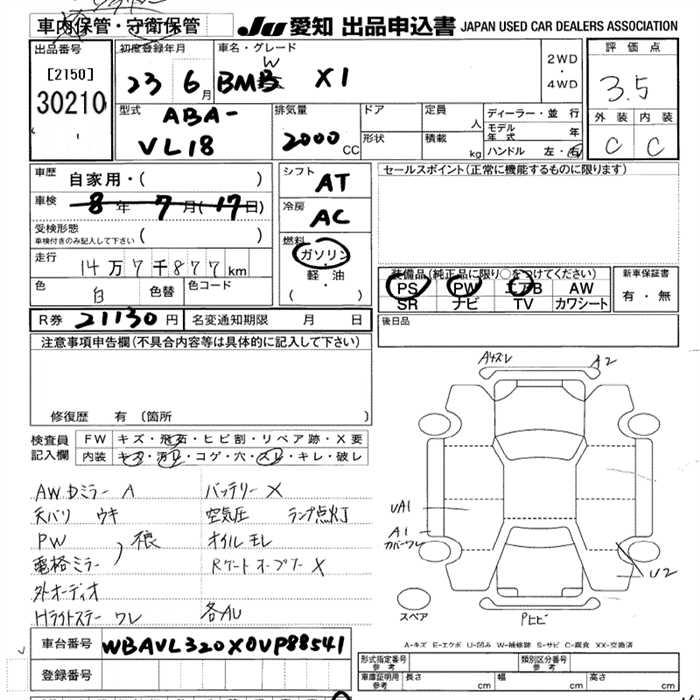 車内保管・守衛保管
JU 愛知 出品申込書 JAPAN USED CAR DEALERS ASSOCIATION
出品番号
[2150]
30210
初度登録年月
23 6月
車名・グレード
BMW X1
2WD
・
4WD
評価点
3.5
外装 内装
C C
型式
ABA-
VL18
排気量
2000 CC
ドア
形状
定員 人
積載 kg
ディーラー・並行
モデル年式 年
ハンドル 左・右
車歴
自家用・( )
車検
8年 7月(17日)
受検形態
車検付きのみ記入して下さい ( )
走行
14万7千877km
色
白
色替
色コード
シフト
AT
冷房
AC
燃料
ガソリン
・
軽・油
( )
セールスポイント(正常に機能するものに限ります)
装備品(純正品に限り○をつけてください)
PS PW エアB AW
SR ナビ TV カワシート
新車保証書
有・無
R券 21130円
名変通知期限 月 日
後日品
注意事項申告欄(不具合内容等は具体的に記入して下さい)
修復歴 有(箇所
検査員
記入欄
FW キズ・飛石・ヒビ割・リペア跡・X要
内装 キズ・汚レ・コゲ・穴・スレ・キレ・破レ
AWDミラー A
天バリ ウキ
PW
電格ミラー
外オーディオ
Hライトステー ワレ
バッテリー X
空気圧 ランプ点灯
オイルモレ
各AU
A4スレ
A2
UA1
A1
カバーワレ
U2
スペア
A-キズ E-エクボ U-凹み W-補修跡 S-サビ C-腐食 XX-交換済
車台番号
WBAVL320X0VP88541
登録番号
形式指定番号
参考
類別区分番号
参考
車庫証明用
参考
長さ cm
幅 cm
高さ cm